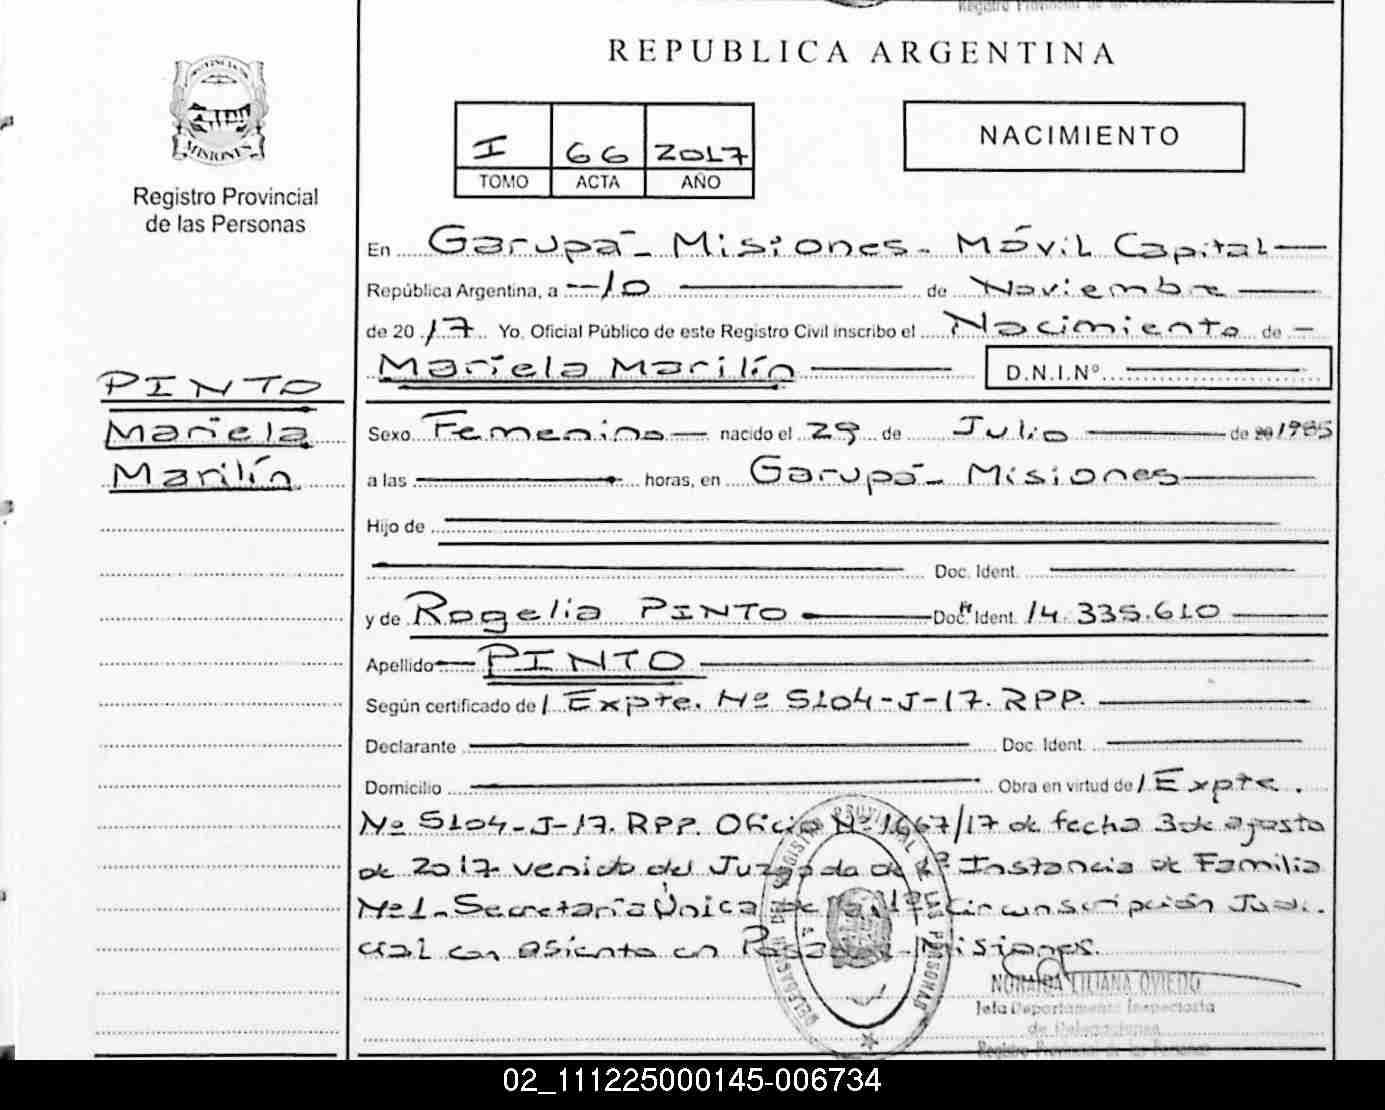 REPUBLICA ARGENTINA
PROVINCIA DE
MISIONES
Registro Provincial
de las Personas
I 66 2017
TOMO ACTA AÑO
NACIMIENTO
En Garupá - Misiones - Móvil Capital
República Argentina, a 10 de Noviembre
de 2017 Yo, Oficial Público de este Registro Civil inscribo el Nacimiento de
Mariela Marilín D.N.I.Nº
PINTO
Mariela
Marilín
Sexo Femenino nacido el 29 de Julio de 20 1985
a las horas, en Garupá - Misiones
Hijo de
Doc. Ident.
y de Rogelia PINTO Doc. Ident. 14.335.610
Apellido PINTO
Según certificado de / Expte. Nº 5104-J-17. RPP.
Declarante Doc. Ident.
Domicilio Obra en virtud de / Expte.
Nº 5104-J-17. RPP. Oficio Nº 1667/17 de fecha 3 de agosto
de 2017 venido del Juzgado de 1º Instancia de Familia
Nº 1 - Secretaría Única de la 1º Circunscripción Judi-
cial con asiento en Posadas - Misiones.
NORAIDA LILIANA OVIEDO
Jefa Departamento Inspectoría
de Delegaciones
Registro Provincial de las Personas
02_111225000145-006734